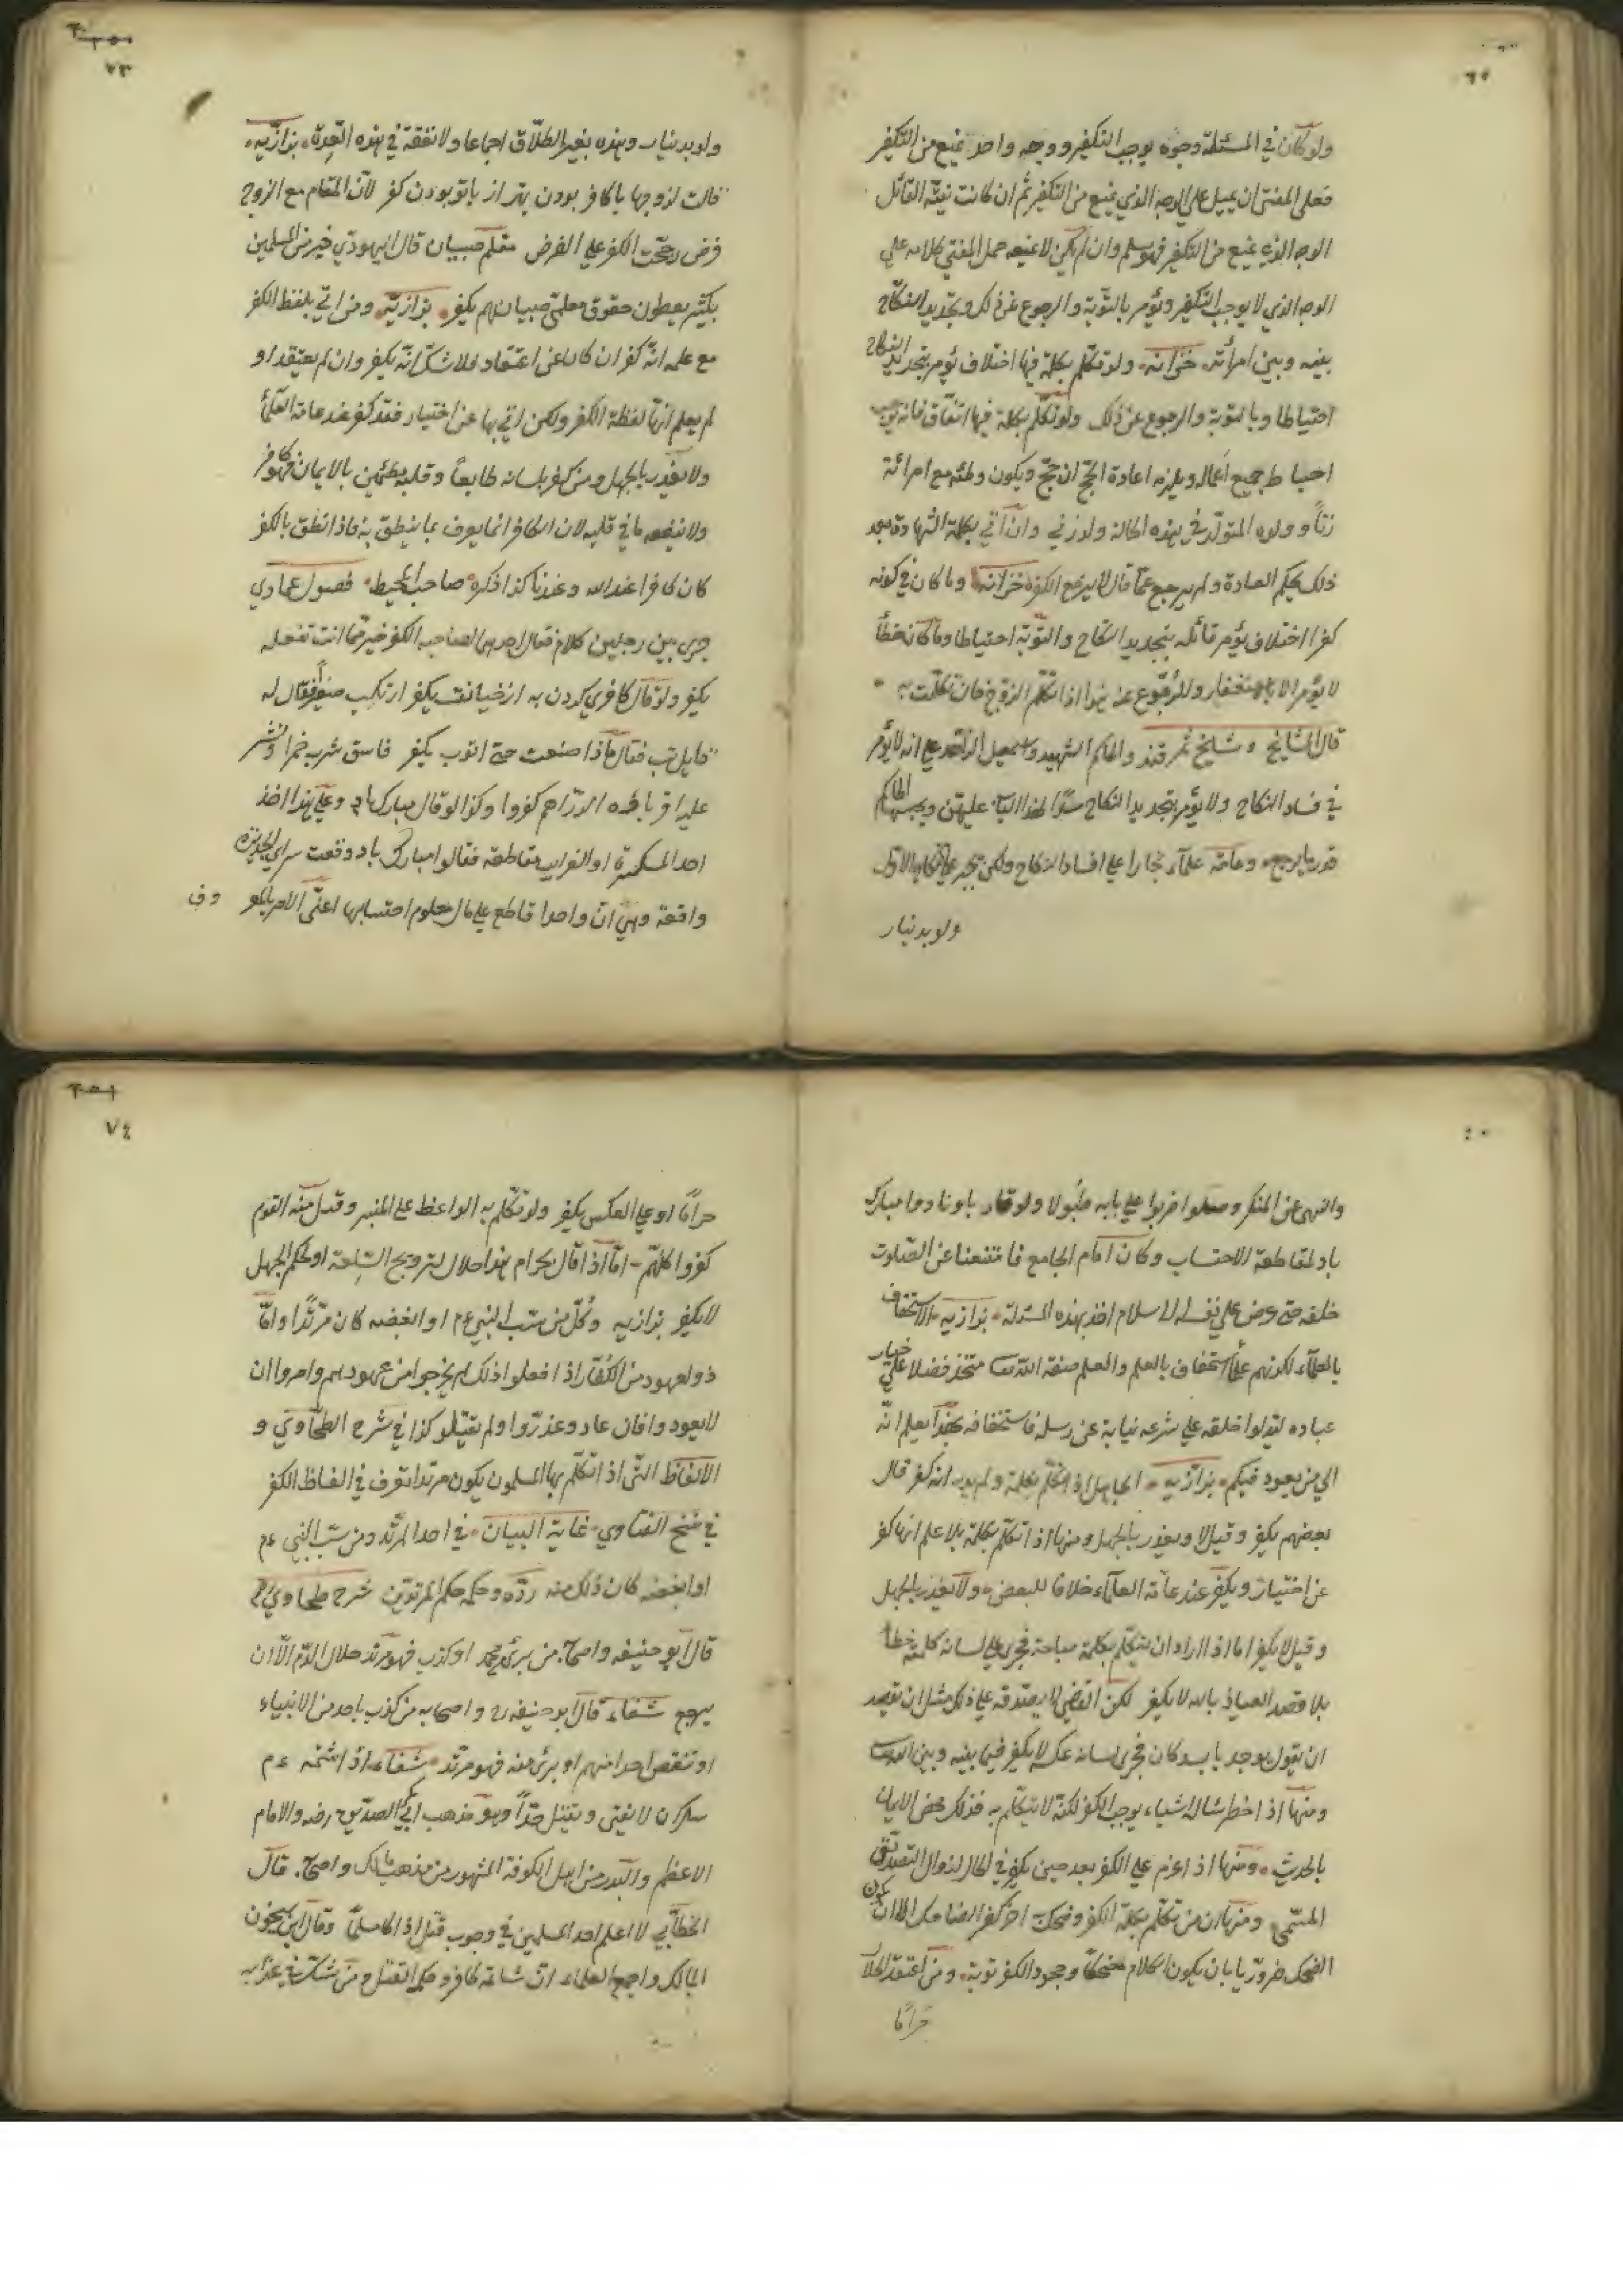 ولو كان في المسئلة وجوه يوجب التكفير ووجه واحد يمنع من التكفير
فعلى المفتى ان يميل على الوجه الذي يمنع من التكفير ثم ان كانت نيته القائل
الوجه الذي يمنع من التكفير فهو مسلم وان لم يكن لا ينفعه حمل المفتي كلامه على
الوجه الذي لا يوجب التكفير ويؤمر بالتوبة والرجوع عن ذلك وبتجديد النكاح
بينه وبين امرأته خزانه ولو تكلم بكلمة فيها اختلاف يؤمر بتجديد النكاح
احتياطا وبالتوبة والرجوع عن ذلك ولو تكلم بكلمة فيها اتفاق فانه يوجب
احباط جميع اعماله ويلزمه اعادة الحج ان حج ويكون وطئه مع امرأته
زناً وولده المتولد في هذه الحالة ولد زني وان اتي بكلمة الشهادة بعد
ذلك بحكم العادة ولم يرجع عما قال لا يرتفع الكفر خزانه وما كان في كونه
كفرا اختلاف يؤمر قائله بتجديد النكاح والتوبة احتياطا وما كان خطأ
لا يؤمر الا بالاستغفار والرجوع عنه هذا اذا تكلم الزوج فان تكلمت
قال المشايخ و مشايخ سمرقند والحاكم الشهيد واسمعيل الزاهد على انه لا يؤثر
في فساد النكاح ولا يؤمر بتجديد النكاح سدّا لهذا الباب عليهن ويجبرها الحاكم
وعامة علماء بخارا على افساد النكاح ولكن تجبر على النكاح الاول
ولو بدينار
٧٣
ولو بدينار وهذه بغير الطلاق اجماعا ولا نفقة في هذه العدة بزازيه
قالت لزوجها با كافر بودن بهتر از با تو بودن كفر لان المقام مع الزوج
فرض رجحت الكفر على الفرض معلم صبيان قال اليهودي خير من المسلمين
بكثير يعطون حقوق معلمي صبيانهم يكفر بزازية ومن اتي بلفظ الكفر
مع علمه انه كفر ان كان عن اعتقاد فلا شك انه يكفر وان لم يعتقد او
لم يعلم انها لفظة الكفر ولكن اتي بها عن اختيار فقد كفر عند عامة العلمأ
ولا يعذر بالجهل ومن كفر بلسانه طايعاً وقلبه مطمئن بالايمان فهو كافر
ولا ينفعه ما في قلبه لان الكافر انما يعرف بما ينطق به فاذا نطق بالكفر
كان كافرا عند الله وعندنا كذا ذكره صاحب المحيط فصول عمادي
جرى بين رجلين كلام فقال احدهما لصاحبه الكفر خير مما انت تفعله
يكفر ولو قال كافري كردن به از خيانت يكفر ارتكب صغيرا فقال له
قايل تب فقال ماذا صنعت حتى اتوب يكفر فاسق شرب خمرا ونثر
عليه اقرباءه الدراهم كفروا وكذا لو قال مبارك باد وعلى هذا اخذ
احد المسكرة او الضرايب مقاطعة فقالوا مبارك باد وقعت سراي الجديدة
واقعة وهي ان واحدا قاطع على مال معلوم احتسابها اعني الامر بالمعر وف
والنهي عن المنكر وضربوا على بابه طبولا ونادوا مبارك
باد لمقاطعة الاحتساب وكان امام الجامع فامتنعنا عن الصلوت
خلفه حتى عرض على نفسه الاسلام اخذ بهذه المسئلة بزازيه الاستخفاف
بالعلماء لكونهم علماء استخفاف بالعلم والعلم صفة الله تعا منحه فضلا على خيار
عباده ليدلوا خلقه على شرعه نيابة عن رسله فاستخفافه بهذا يعلم انه
الى من يعود فيكم بزازيه الجاهل اذا تكلم بكلمة ولم يدر انه كفر قال
بعضهم يكفر وقيل لا ويعذر بالجهل ومنها اذا تكلم بكلمة بلا علم انها كفر
عن اختيار ويكفر عند عامة العلماء خلافا للبعض ولا يعذر بالجهل
وقيل لا يكفر اما اذا اراد ان يتكلم بكلمة مباحة فجرى على لسانه كلمة خطأ
بلا قصد العياذ بالله لا يكفر لكن القاضي لا يصدقه على ذلك مثل ان يقصد
ان يقول فجرى لسانه عكسه لا يكفر فيما بينه وبين الله تعا
ومنها اذا اخطر بباله اشياء يوجب الكفر لكنه لا يتكلم به فذلك محض الايمان
بالحديث ومنها اذا عزم على الكفر بعد حين يكفر في الحال لزوال التصديق
المستمر ومنها ان من تكلم بكلمة الكفر وضحك اخر كفر الضاحك الا ان يكون
الضحك ضروريا بان يكون الكلام مضحكا وجحود الكفر توبة ومن اعتقد الحلال
حراما
٧٤
حراما او على العكس يكفر ولو تكلم به الواعظ على المنبر وقبل منه القوم
كفروا كلهم اما اذا قال لحرام هذا حلال لترويج السلعة او لحكم الجهل
لا يكفر بزازيه وكل من سب النبي عم او ابغضه كان مرتدا واما
ذو العهود من الكفار اذا فعلوا ذلك لم يخرجوا من عهودهم وامروا ان
لا يعودوا فان عادوا عزروا ولم يقتلوا كذا في شرح الطحاوي و
الالفاظ التي اذا تكلم بها المسلمون يكون مرتدا تعرف في الفاظ الكفر
في نسخ الفتاوي غاية البيان في احدا المرتد ومن سب النبي عم
او ابغضه كان ذلك منه ردة وحكمه حكم المرتدين شرح طحاوي
قال ابو حنيفه واصحا من برئ محمد او كذب فهو مرتد حلال الدم الا ان
يرجع شفاء قال ابو حنيفه واصحابه من كذب باحد من الانبياء
او تنقص احدا منهم او برئ منه فهو مرتد شفاء اذا شتمه عم
سكران لا يفتى ويقتل حدا وهو مذهب ابي بكر الصديق رضه والامام
الاعظم والبدر من اهل الكوفة المشهور من مذهب مالك واصحا قال
الخطابي لا اعلم احد المسلمين في وجوب قتله اذا كان مسلما وقال ابن سحنون
المالك واجمع العلماء ان شاتمه كافر وحكمه القتل ومن شك في عذابه